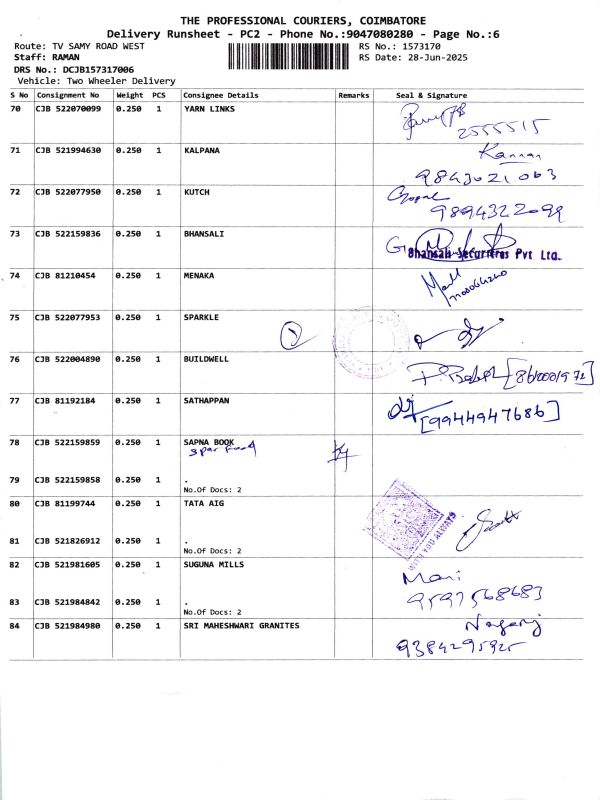 THE PROFESSIONAL COURIERS, COIMBATORE
Delivery Runsheet - PC2 - Phone No.:9047080280 - Page No.:6
Route: TV SAMY ROAD WEST
RS No.: 1573170
Staff: RAMAN
RS Date: 28-Jun-2025
DRS No.: DCJB157317006
Vehicle: Two Wheeler Delivery
S No Consignment No Weight PCS Consignee Details Remarks Seal & Signature
70 CJB 522070099 0.250 1 YARN LINKS
2555515
71 CJB 521994630 0.250 1 KALPANA Kannan
9843021063
72 CJB 522077950 0.250 1 KUTCH Gopal
9894322099
73 CJB 522159836 0.250 1 BHANSALI
Bhansali Securities Pvt Ltd.
74 CJB 81210454 0.250 1 MENAKA
75 CJB 522077953 0.250 1 SPARKLE
76 CJB 522004890 0.250 1 BUILDWELL
77 CJB 81192184 0.250 1 SATHAPPAN
[9944947686]
78 CJB 522159859 0.250 1 SAPNA BOOK
Spar food
79 CJB 522159858 0.250 1 .
No.Of Docs: 2
80 CJB 81199744 0.250 1 TATA AIG
WITH YOU ALWAYS
81 CJB 521826912 0.250 1 .
No.Of Docs: 2
82 CJB 521981605 0.250 1 SUGUNA MILLS
Mani
9597568683
83 CJB 521984842 0.250 1 .
No.Of Docs: 2
84 CJB 521984980 0.250 1 SRI MAHESHWARI GRANITES Nagaraj
9384295925